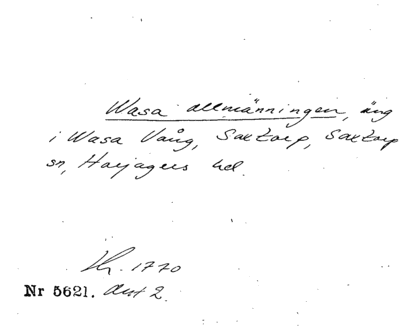 Wasa allmänningen, äng
i Wasa Vång, Saxtorp, Saxtorp
sn, Harjagers hd.
1770
Nr 5621. Akt 2.